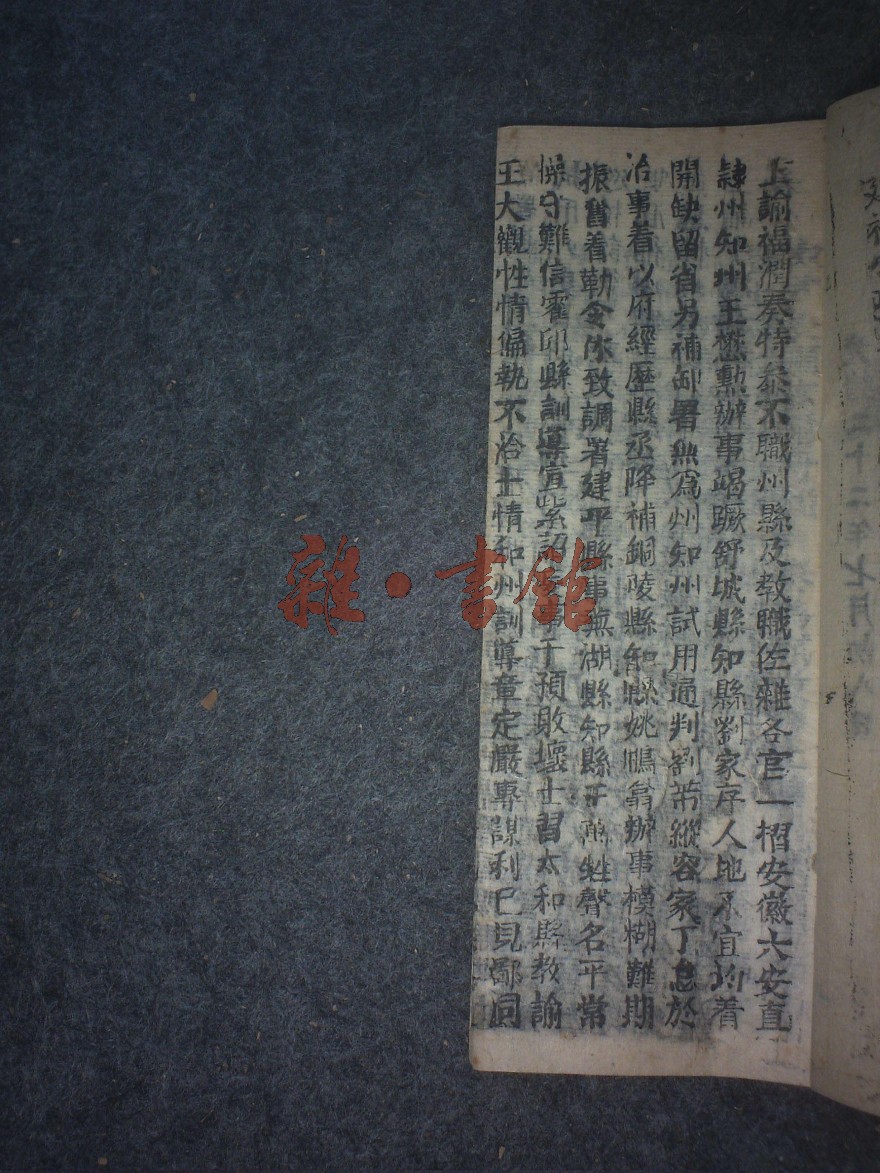 上諭福潤奏特參不職州縣及教職佐雜各官一摺安徽六安直
隸州知州王懋勳辦事竭蹶舒城縣知縣劉家序人地不宜均着
開缺留省另補卸署無爲州知州試用通判劉芾縱容家丁怠於
治事着以府經歷縣丞降補銅陵縣知縣姚鵬翥辦事模糊難期
振奮着勒令休致調署建平縣事蕪湖縣知縣甡聲名平常
操守難信霍邱縣訓導宣紫詔事干預敗壞士習太和縣教諭
王大觀性情偏執不洽士情和州訓導章定嚴專謀利已見鄙同
二十二年七月
雜·書館